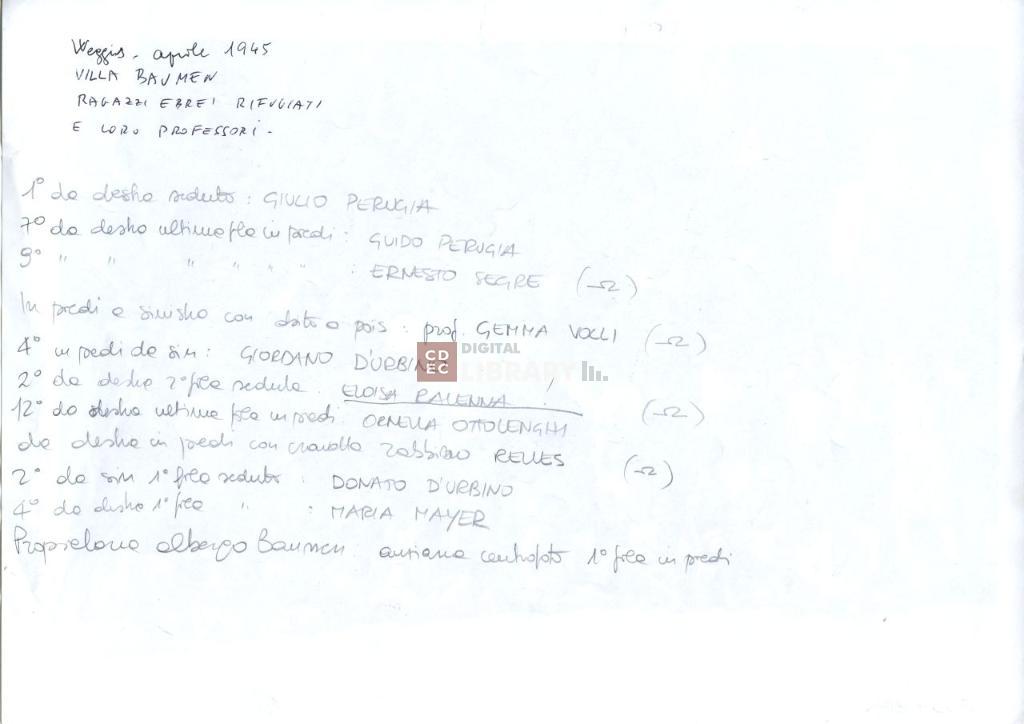 Weggis - aprile 1945
VILLA BAUMEN
RAGAZZI EBREI RIFUGIATI
E LORO PROFESSORI -
1° da destra seduto : GIULIO PERUGIA
7° da destra ultima fila in piedi : GUIDO PERUGIA
9° " " " " " " : ERNESTO SEGRE (Ω)
In piedi a sinistra con abito a pois : prof. GEMMA VOLLI (Ω)
4° in piedi da sin : GIORDANO D'URBINO
2° da destra 2° fila seduta ELOISA RAVENNA !
12° da destra ultima fila in piedi ORNELLA OTTOLENGHI (Ω)
da destra in piedi con cravatta rabbino RELLES (Ω)
2° da sin 1° fila seduto : DONATO D'URBINO
4° da destra 1° fila " : MARIA MAYER
Proprietaria albergo Baumen : anziana centrofoto 1° fila in piedi
CD
EC
DIGITAL
LIBRARY